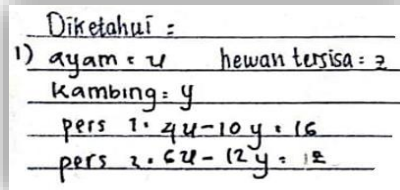 Diketahui =
1) ayam = u hewan tersisa = z
Kambing = y
pers 1 = 4u - 10y = 16
pers 2 = 6u - 12y = 12